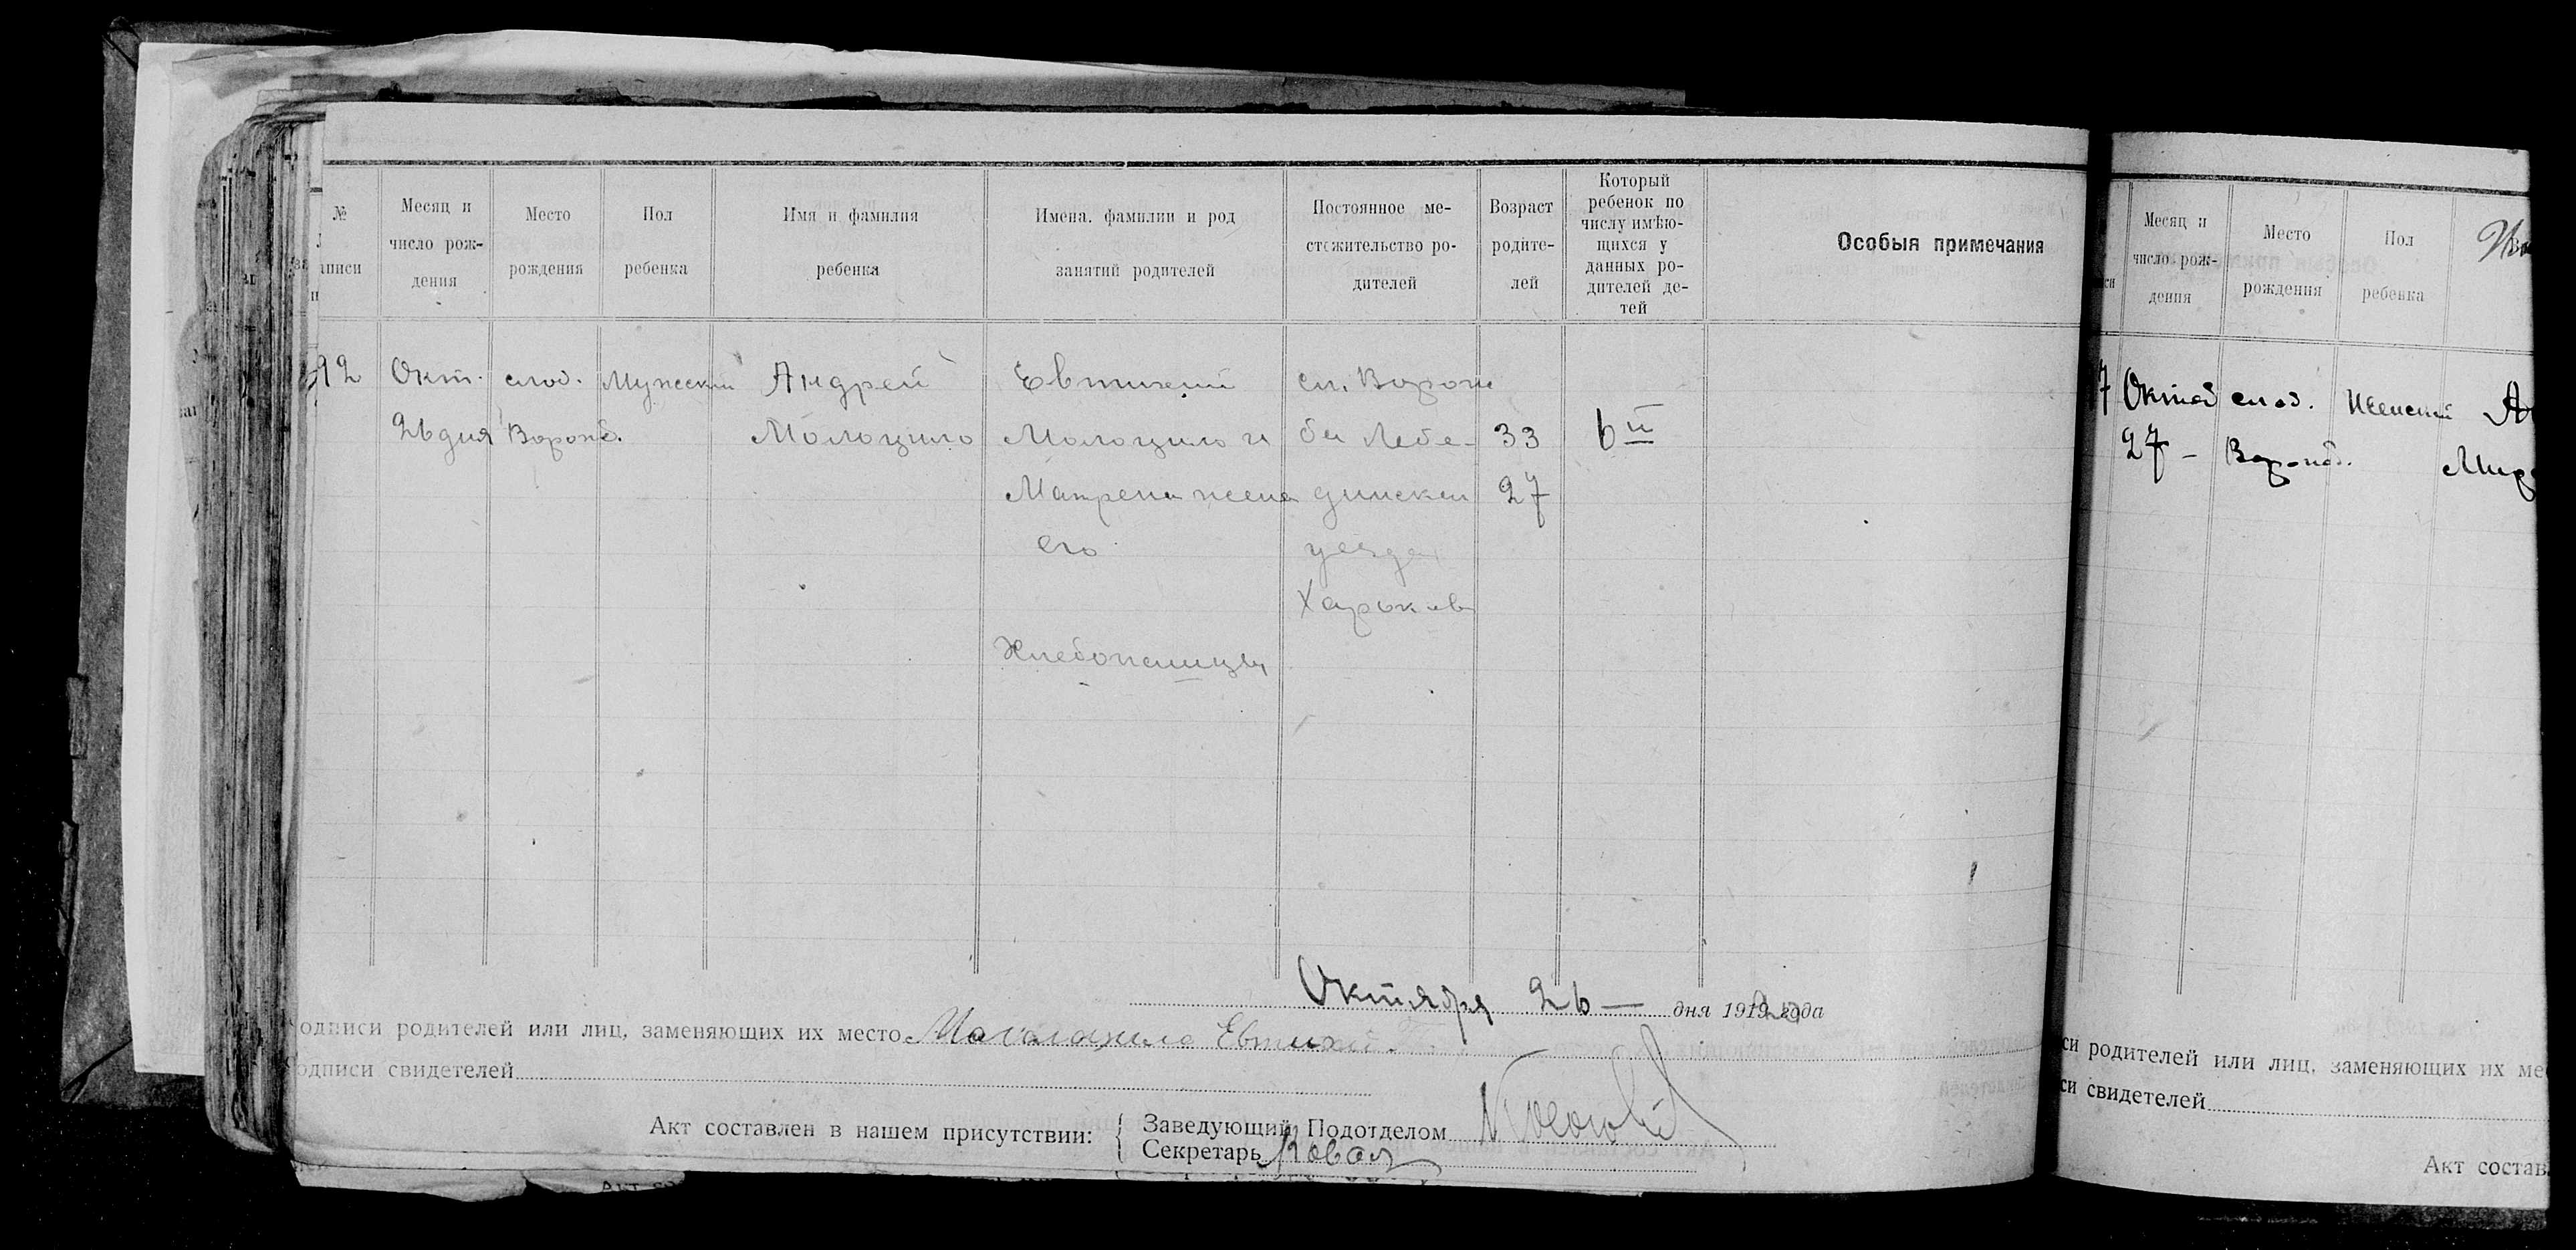 №
аписи
Месяц и
число рож-
дения
Место
рождения
Пол
ребенка
Имя и фамилия
ребенка
Имена, фамилии и род
занятий родителей
Постоянное ме-
стожительство ро-
дителей
Возраст
родите-
лей
Который
ребенок по
числу имѣю-
щихся у
данных ро-
дителей де-
тей
Особыя примечания
92
Окт.
26 дня
слоб.
Ворожб.
Мужеский
Андрей
Молоцило
Евтихий
Молоцило и
Матрена жена
его
Хлебопашцы
сл. Ворож
бы Лебе-
динскаго
уезда
Харьков
33
27
6й
Октября 26 — дня 1920 года
одписи родителей или лиц, заменяющих их место Евтихий
одписи свидетелей
Акт составлен в нашем присутствии:
Заведующий Подотделом
Секретарь Коваль
Месяц и
число рож-
дения
Место
рождения
Пол
ребенка
7
Октяб
27 –
слоб.
Ворожб.
Женский
си родителей или лиц, заменяющих их ме
си свидетелей
Акт состав